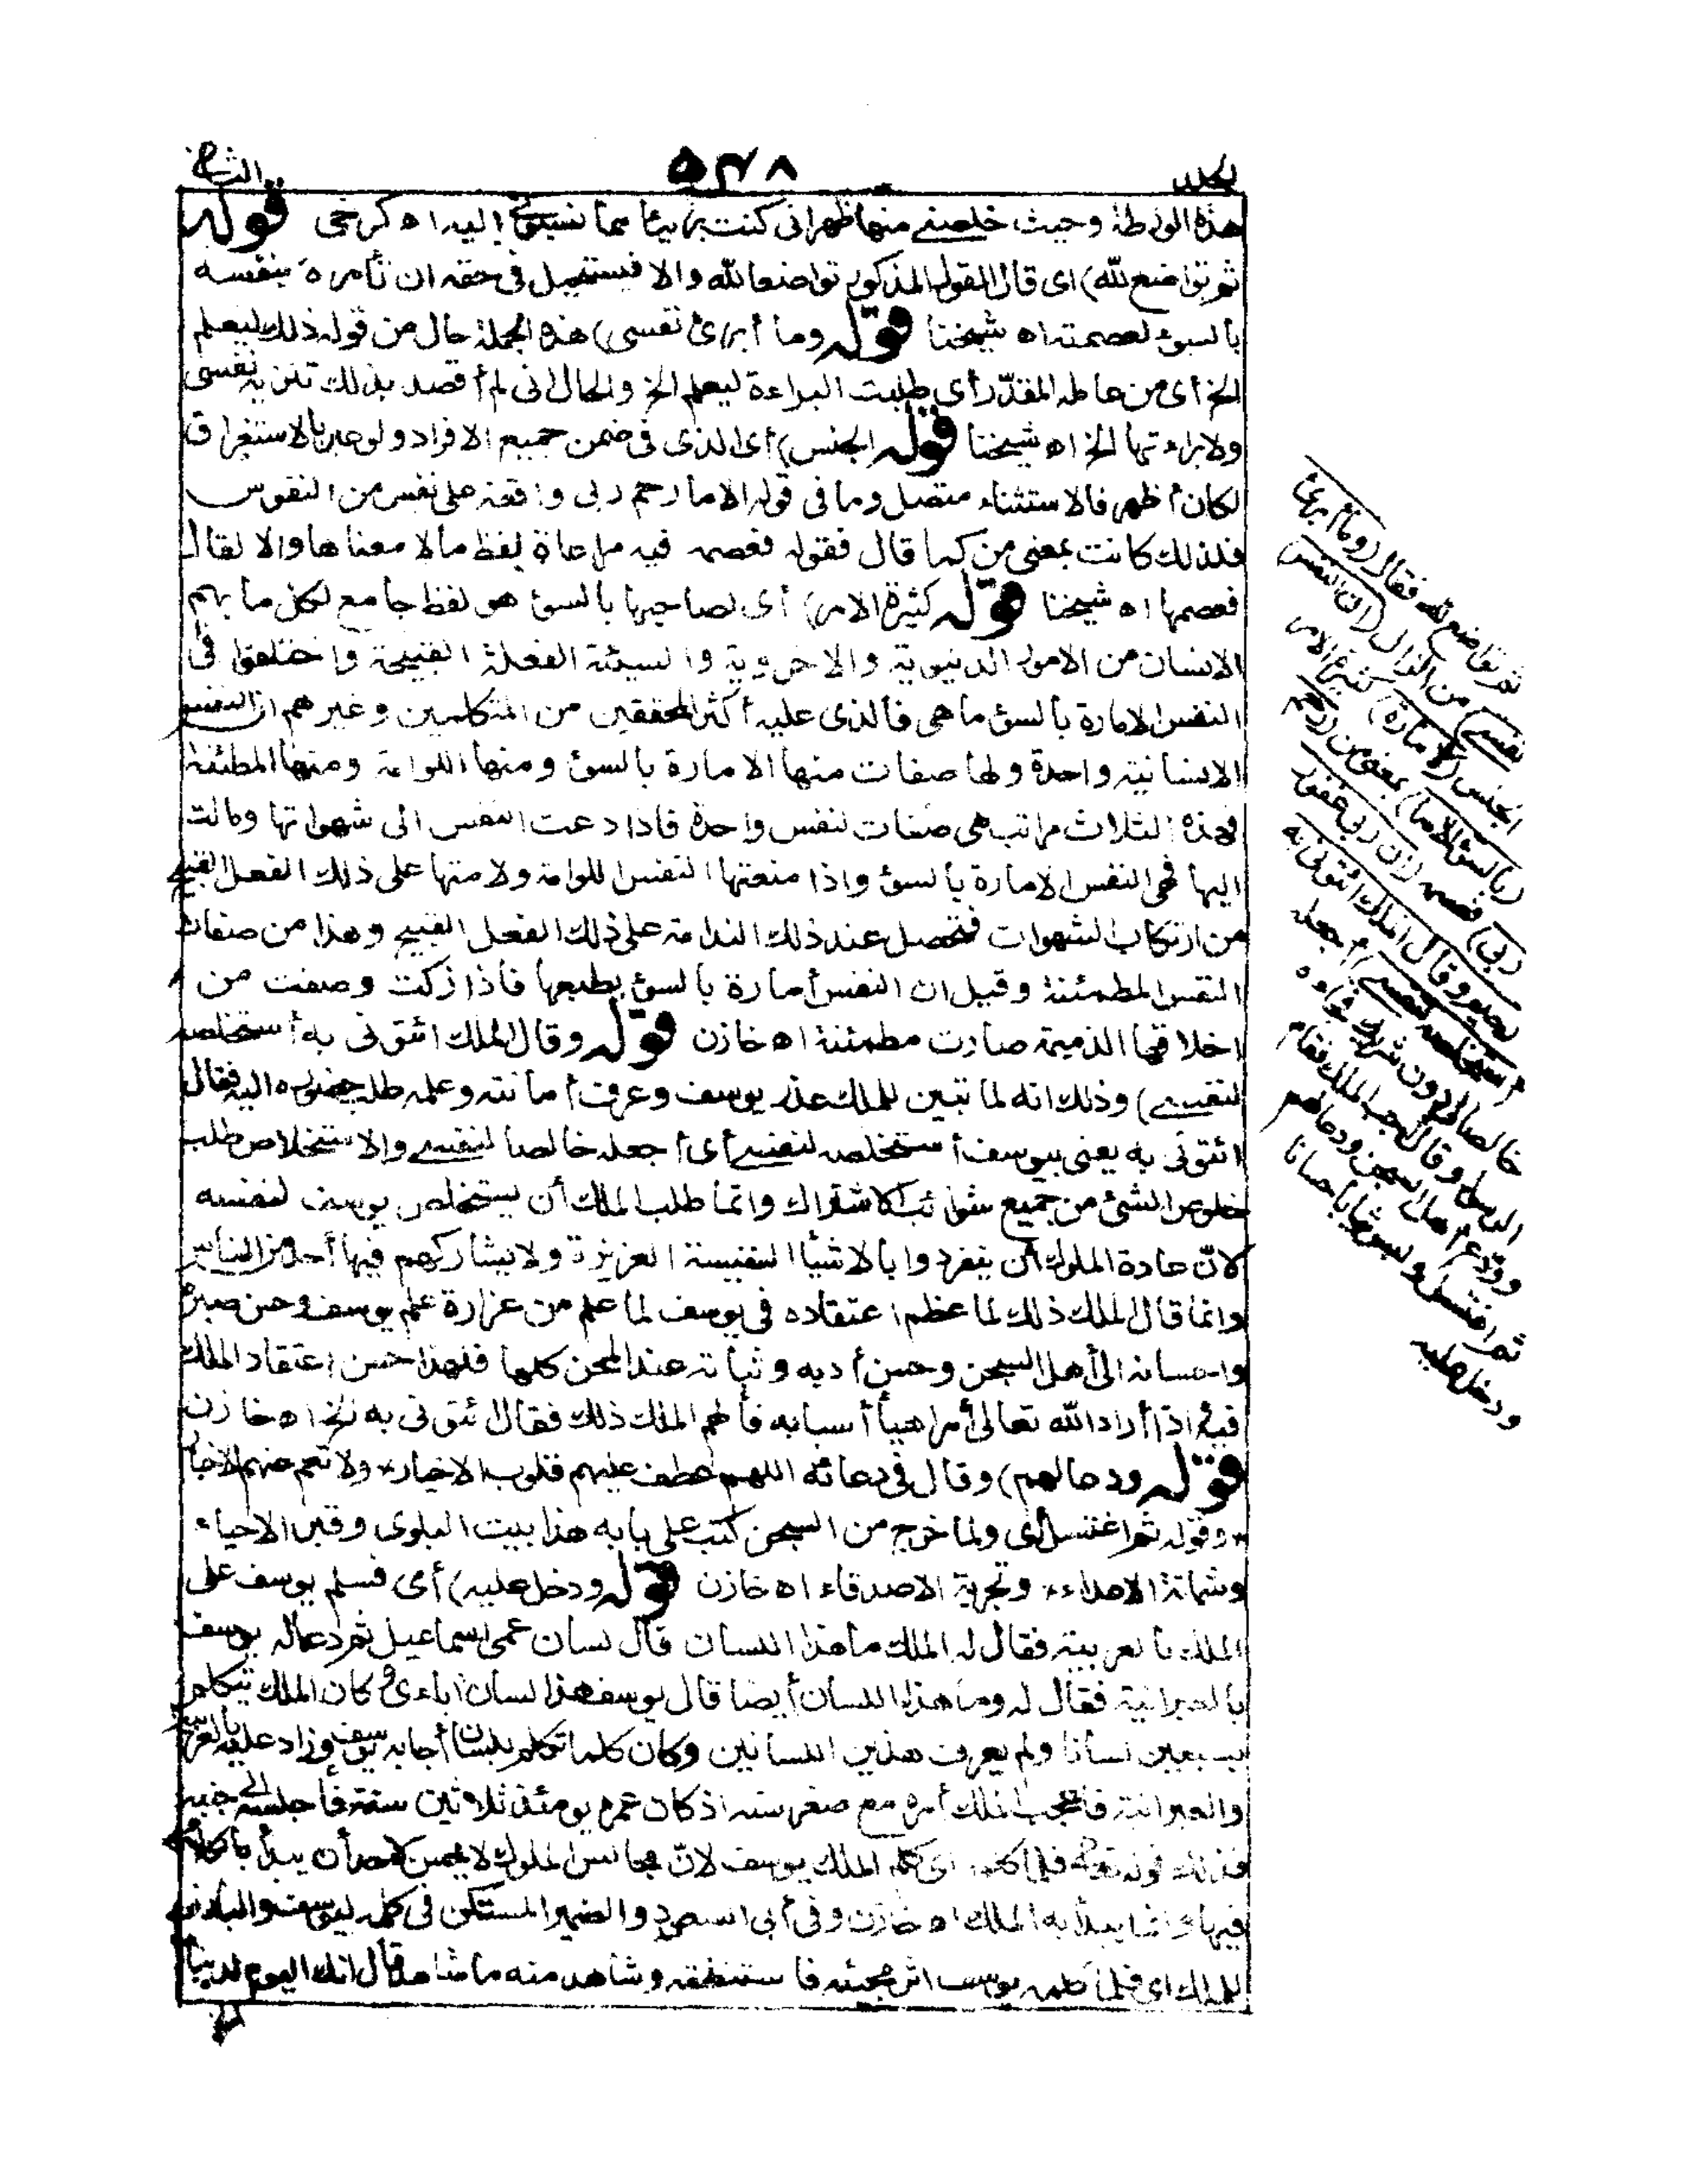 الجلد
٥٣٨
الثانى
هذه الورطة وحيث خلصنى منها ظهر انى كنت بريئا مما نسبتنى إليه اه كرخى قوله
ثم تواضع لله) اى قال القول المذكور تواضعا لله والا فيستحيل فى حقه ان تأمره نفسه
بالسوء لعصمته اه شيخنا قوله وما أبرئ نفسى) هذه الجملة حال من قوله ذلك ليعلم
الخ أى من عامله المقدّر أى طلبت البراءة ليعلم الخ والحال انى لم أقصد بذلك تنزيه نفسى
ولا براءتها الخ اه شيخنا قوله الجنس) أى الذى فى ضمن جميع الافراد ولو عبر بالاستغراق
لكان أظهر فالاستثناء متصل وما فى قوله الا ما رحم ربى واقعة على نفس من النفوس
فلذلك كانت بمعنى من كما قال فقوله فعصمه فيه مراعاة لفظ ما لا معناها والا لقال
فعصمها اه شيخنا قوله كثيرة الامر) أى لصاحبها بالسوء هو لفظ جامع لكل ما يهم
الانسان من الامور الدنيوية والاخروية والسيئة الفعلة القبيحة واختلفوا فى
النفس الامارة بالسوء ما هى فالذى عليه أكثر المحققين من المتكلمين وغيرهم ان النفس
الانسانية واحدة ولها صفات منها الامارة بالسوء ومنها اللوامة ومنها المطمئنة
فهذه الثلاث مراتب هى صفات لنفس واحدة فاذا دعت النفس الى شهواتها ومالت
اليها فهى النفس الامارة بالسوء واذا منعتها النفس اللوامة ولامتها على ذلك الفعل القبيح
من ارتكاب الشهوات فتحصل عند ذلك الندامة على ذلك الفعل القبيح وهذا من صفات
النفس المطمئنة وقيل ان النفس أمارة بالسوء بطبعها فاذا زكت وصفت من
اخلاقها الذميمة صارت مطمئنة اه خازن قوله وقال الملك ائتونى به أستخلصه
لنفسى) وذلك انه لما تبين للملك عذر يوسف وعرف أمانته وعلمه طلب حضوره اليه فقال
ائتونى به يعنى بيوسف أستخلصه لنفسى أى أجعله خالصا لنفسى والاستخلاص طلب
خلوص الشئ من جميع شوائب الاشتراك وانما طلب الملك أن يستخلص يوسف لنفسه
لانّ عادة الملوك أن ينفردوا بالاشيأ النفيسة العزيزة ولا يشاركهم فيها أحد من الناس
وانما قال الملك ذلك لما عظم اعتقاده فى يوسف لما علم من غزارة علم يوسف وحسن صبره
واحسانه الى أهل السجن وحسن أدبه وثباته عند المحن كلها فلهذا حسن اعتقاد الملك
فيه اذا أراد الله تعالى أمرا هيأ أسبابه فألهم الملك ذلك فقال ائتونى به الخ اه خازن
قوله ودعا لهم) وقال فى دعائه اللهم اعطف عليهم قلوب الاخيار * ولا تعم عنهم الاخبار
* وقوله ثم اغتسل أى ولما خرج من السجن كتب على بابه هذا بيت البلوى وقبر الاحياء
وشماتة الاعداء * وتجربة الاصدقاء اه خازن قوله ودخل عليه) أى فسلم يوسف على
الملك بالعربية فقال له الملك ما هذا اللسان قال لسان عمى اسماعيل ثم دعا له يوسف
بالعبرانية فقال له وما هذا اللسان أيضا قال يوسف هذا لسان آباءى وكان الملك يتكلم
بسبعين لسانا ولم يعرف هذين اللسانين وكان كلما تكلم بلسان أجابه يوسف وزاد عليه بالعربية
والعبرانية فأعجب الملك أمره مع صغر سنه اذ كان عمره يومئذ ثلاثين سنة فأجلسه الى جنبه
فذلك قوله تعالى فلما كلمه اى كلم الملك يوسف لانّ مجالس الملوك لا يحسن لاحد أن يبدأ بالكلام
فيها وانما يبدأ به الملك اه خازن وفى أبى السعود والضمير المستكن فى كلمه ليوسف والبارز
للملك اى فلما كلمه يوسف اثر مجيئه فاستنطقه وشاهد منه ما شاهد قال انك اليوم لدينا
ثم تواضع لله فقال (وما أبرئ
نفسى) من الزلل (ان النفس)
الجنس (لامارة) كثيرة الامر
(بالسوء الا ما) بمعنى من (رحم
ربى) فعصمه (ان ربى غفور
رحيم وقال الملك ائتونى به
أستخلصه لنفسى) أجعله
خالصا لى دون شريك فجاءه
الرسول وقال أجب الملك فقام
وودع أهل السجن ودعا لهم
ثم اغتسل ولبس ثيابا حسانا
ودخل عليه